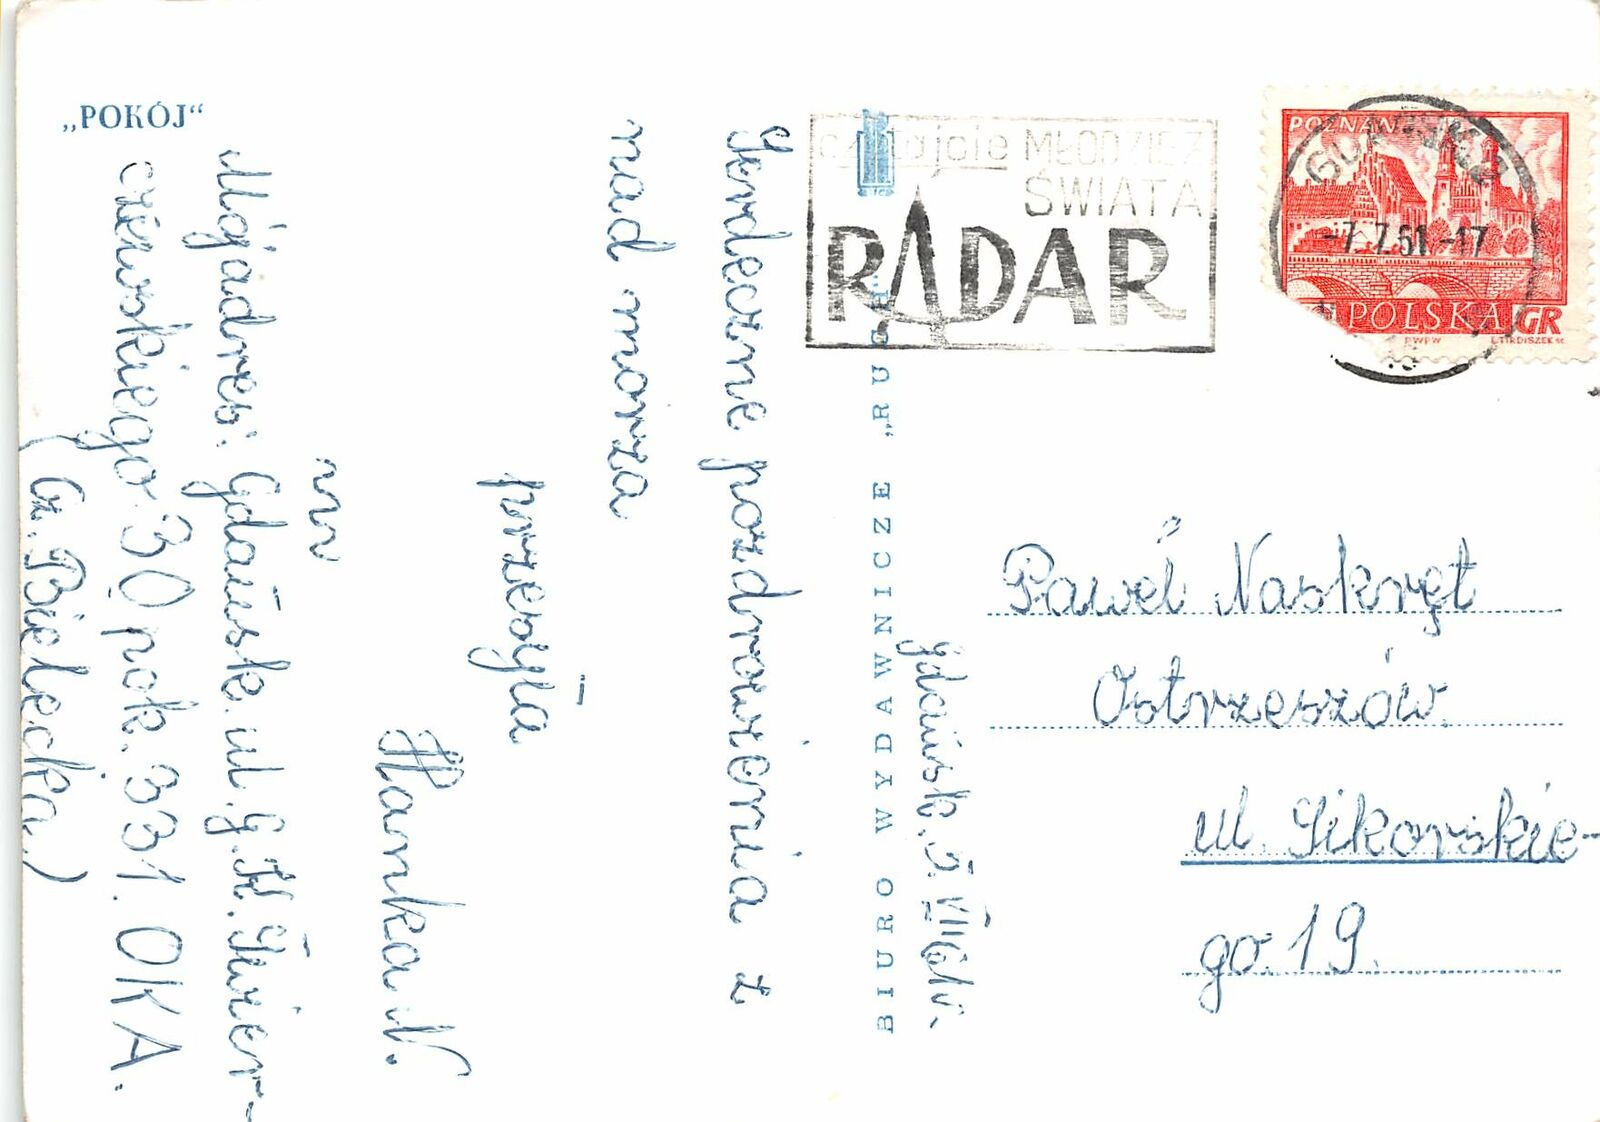 „POKÓJ“
Serdeczne pozdrowienia z
nad morza
przesyła
Hanka N.
Mój adres: Gdańsk. ul. G. K. Świer-
czewskiego 30 pok. 331. OKA.
(Cz. Bielecka.)
BIURO WYDAWNICZE „RUCH"
Gdańsk. 5. VII 61r.
czytajcie MŁODZIEŻ
ŚWIATA
RADAR
POZNAŃ
GDAŃSK 2
-7.7.61-17
POLSKA GR
PWPW
Paweł Naskręt
Ostrzeszów.
ul. Sikorskie-
go 19.